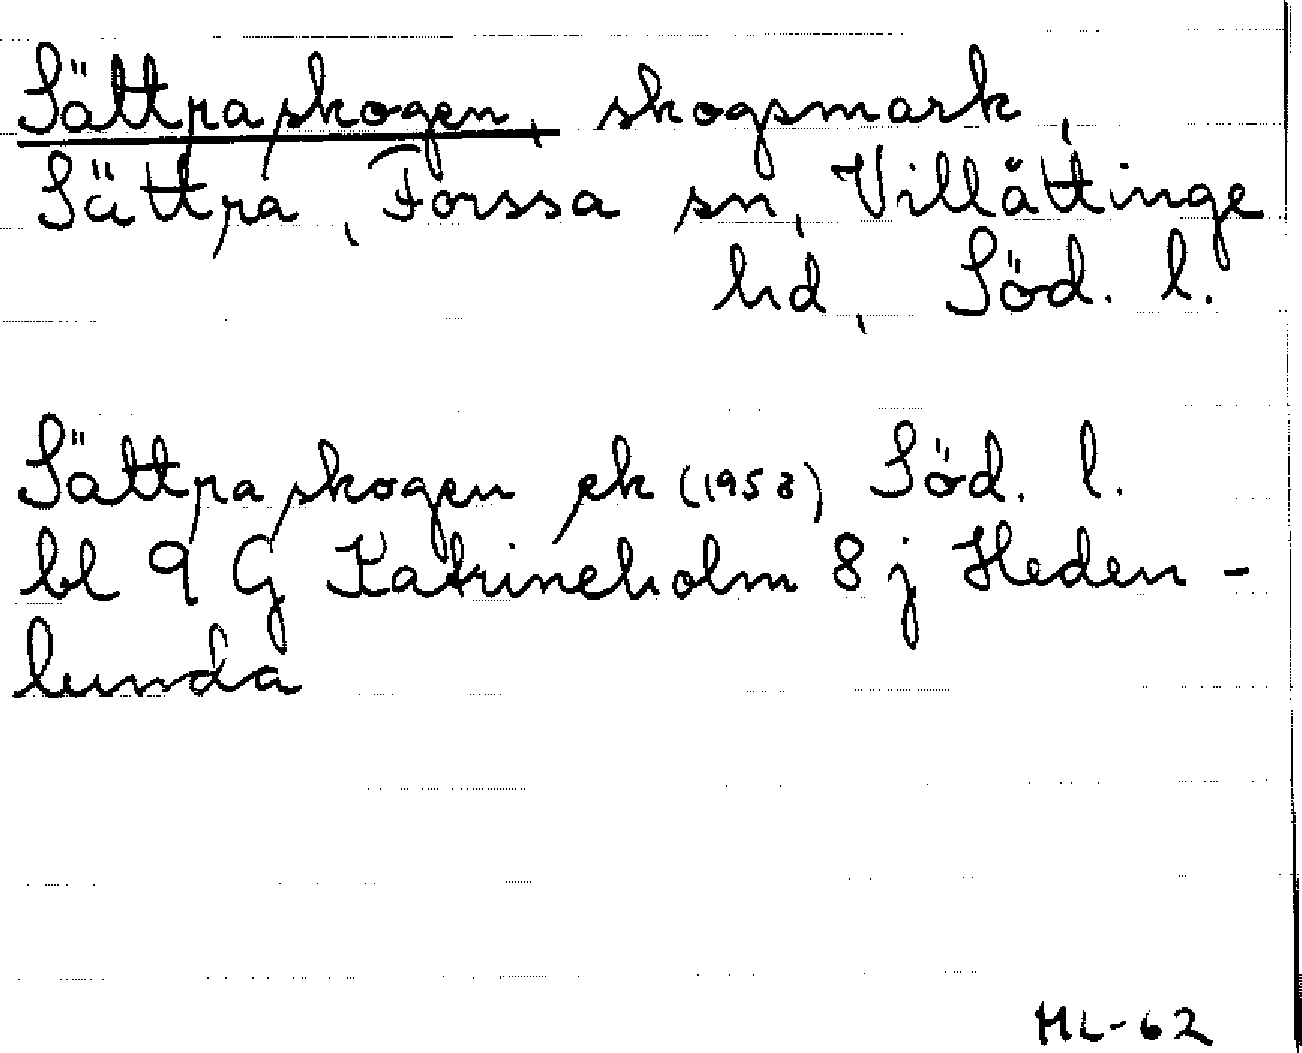 Sättraskogen, skogsmark,
Sättra, Forssa sn, Villåttinge
hd, Söd. l.
Sättraskogen ek (1958) Söd. l.
bl 9 G Katrineholm 8 j Heden-
lunda
ML-62